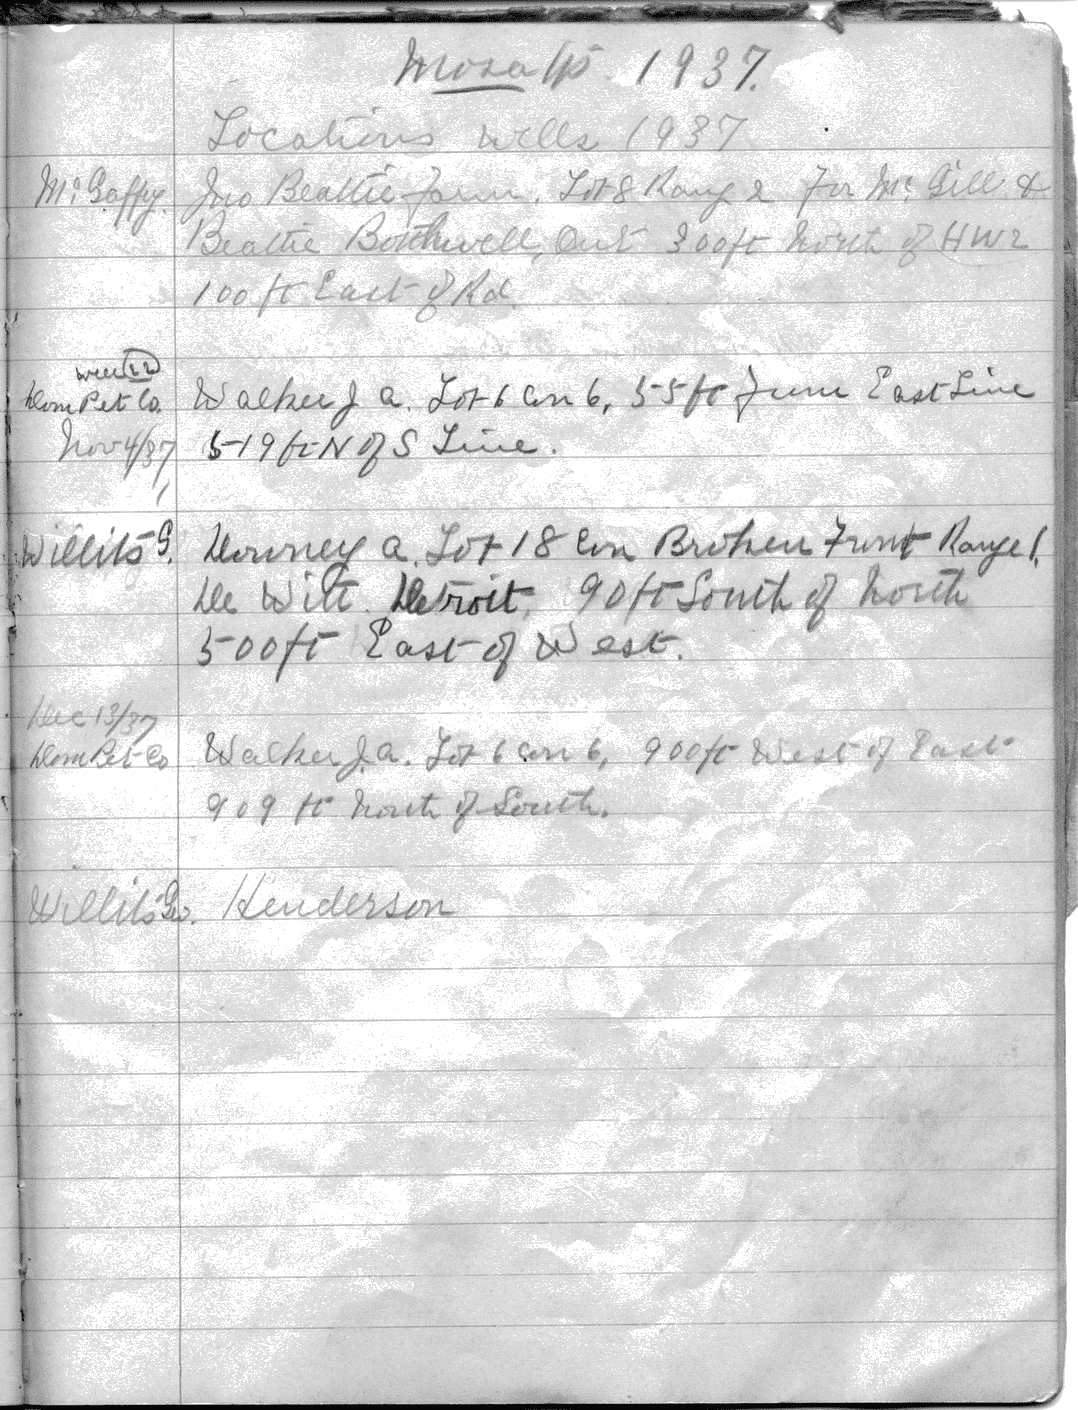 Mosa Tp 1937.
Locations Wells 1937
McGaffy. Jno Beattie Farm. Lot 8 Rang 2 For McGill &
Beattie Bothwell, Ont 300ft North of HW2
100 ft East of Rd.
Well 22
Dom Pet Co. Walker J a. Lot 6 Con 6, 55ft From East Line
Nov 4/37 519 ft N of S Line.
Willits G. Downey a. Lot 18 Con Broken Front Range 1.
De Witt. Detroit, 90ft South of North
500ft East of West.
Dec 13/37
Dom Pet Co Walker J. a. Lot 6 Con 6, 900ft West of East
909 ft North of South.
Willits Geo. Henderson